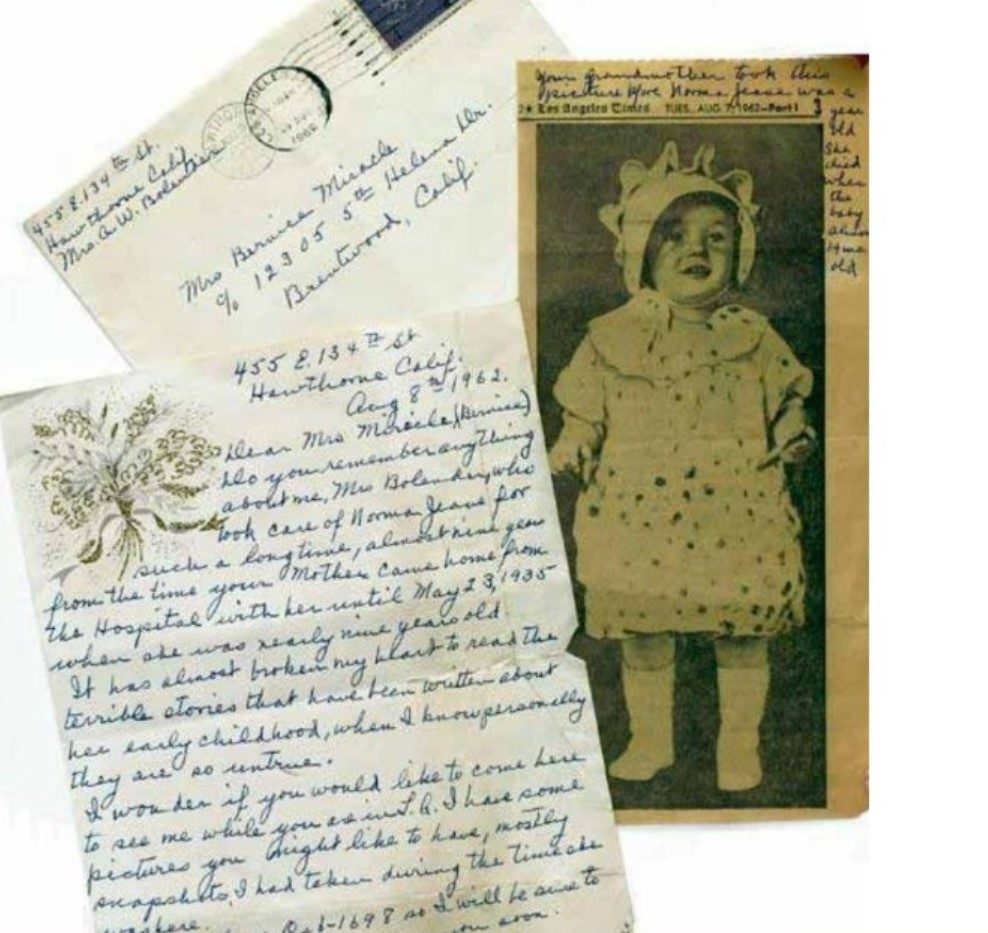 455 E. 134th St.
Hawthorne Calif.
Mrs. A. W. Bolender
LOS ANGELES
1962
Mrs Bernice Miracle
c/o 12305 5th Helena Dr.
Brentwood, Calif.
Your grandmother took this
picture Norma Jeane was a
Los Angeles Times TUES., AUG. 7, 1962—Part I
year
old
She
died
when
the
baby
14 mo
old
455 E. 134th St
Hawthorne Calif.
Aug 8th 1962.
Dear Mrs Miracle (Bernice)
Do you remember anything
about me, Mrs Bolender, who
took care of Norma Jeane for
such a long time, almost nine years
from the time your Mother came home from
the Hospital with her until May 23, 1935
when she was nearly nine years old
It has almost broken my heart to read the
terrible stories that have been written about
her early childhood, when I know personally
they are so untrue.
I wonder if you would like to come here
to see me while you are in L.A. I have some
pictures you might like to have, mostly
snapshots, I had taken during the time she
was here.
1698 so I will be sure to
you soon.